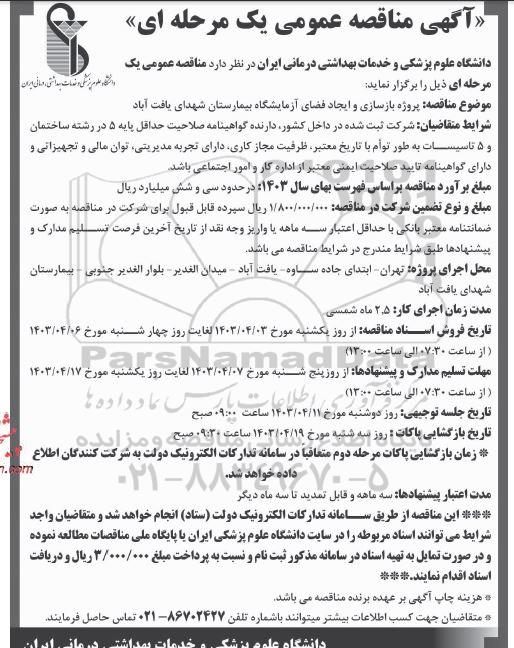 «آگهی مناقصه عمومی یک مرحله ای»
دانشگاه علوم پزشکی و خدمات بهداشتی درمانی ایران
دانشگاه علوم پزشکی و خدمات بهداشتی درمانی ایران در نظر دارد مناقصه عمومی یک
مرحله ای ذیل را برگزار نماید:
موضوع مناقصه: پروژه بازسازی و ایجاد فضای آزمایشگاه بیمارستان شهدای یافت آباد
شرایط متقاضیان: شرکت ثبت شده در داخل کشور، دارنده گواهینامه صلاحیت حداقل پایه ۵ در رشته ساختمان
و ۵ تاسیسات به طور توأم با تاریخ معتبر، ظرفیت مجاز کاری، دارای تجربه مدیریتی، توان مالی و تجهیزاتی و
دارای گواهینامه تایید صلاحیت ایمنی معتبر از اداره کار و امور اجتماعی باشد.
مبلغ برآورد مناقصه براساس فهرست بهای سال ۱۴۰۳: درحدود سی و شش میلیارد ریال
مبلغ و نوع تضمین شرکت در مناقصه: ۱/۸۰۰/۰۰۰/۰۰۰ ریال سپرده قابل قبول برای شرکت در مناقصه به صورت
ضمانتنامه معتبر بانکی با حداقل اعتبار سه ماهه یا واریز وجه نقد از تاریخ آخرین فرصت تسلیم مدارک و
پیشنهادها طبق شرایط مندرج در شرایط مناقصه می باشد.
محل اجرای پروژه: تهران- ابتدای جاده ساوه- یافت آباد - میدان الغدیر- بلوار الغدیر جنوبی - بیمارستان
شهدای یافت آباد
مدت زمان اجرای کار: ۲.۵ ماه شمسی
تاریخ فروش اسناد مناقصه: از روز یکشنبه مورخ ۱۴۰۳/۰۴/۰۳ لغایت روز چهار شنبه مورخ ۱۴۰۳/۰۴/۰۶
( از ساعت ۰۷:۳۰ الی ساعت ۱۳:۰۰)
مهلت تسلیم مدارک و پیشنهادها: از روز پنج شنبه مورخ ۱۴۰۳/۰۴/۰۷ لغایت روز یکشنبه مورخ ۱۴۰۳/۰۴/۱۷
( از ساعت ۰۷:۳۰ الی ساعت ۱۳:۰۰)
تاریخ جلسه توجیهی: روز دوشنبه مورخ ۱۴۰۳/۰۴/۱۱ ساعت ۰۹:۰۰ صبح
تاریخ بازگشایی پاکات : روز سه شنبه مورخ ۱۴۰۳/۰۴/۱۹ ساعت ۰۹:۳۰ صبح
* زمان بازگشایی پاکات مرحله دوم متعاقباً در سامانه تدارکات الکترونیک دولت به شرکت کنندگان اطلاع
داده خواهد شد.
مدت اعتبار پیشنهادها: سه ماهه و قابل تمدید تا سه ماه دیگر
*** این مناقصه از طریق سامانه تدارکات الکترونیک دولت (ستاد) انجام خواهد شد و متقاضیان واجد
شرایط می توانند اسناد مربوطه را در سایت دانشگاه علوم پزشکی ایران یا پایگاه ملی مناقصات مطالعه نموده
و در صورت تمایل به تهیه اسناد در سامانه مذکور ثبت نام و نسبت به پرداخت مبلغ ۳/۰۰۰/۰۰۰ ریال و دریافت
اسناد اقدام نمایند.***
* هزینه چاپ آگهی بر عهده برنده مناقصه می باشد.
* متقاضیان جهت کسب اطلاعات بیشتر میتوانند باشماره تلفن ۸۶۷۰۲۴۲۷-۰۲۱ تماس حاصل فرمایند.
دانشگاه علوم پزشکی و خدمات بهداشتی درمانی ایران
ParsNamadData
۰۲۱-۸۸۳۴۹۶۷۰-۵